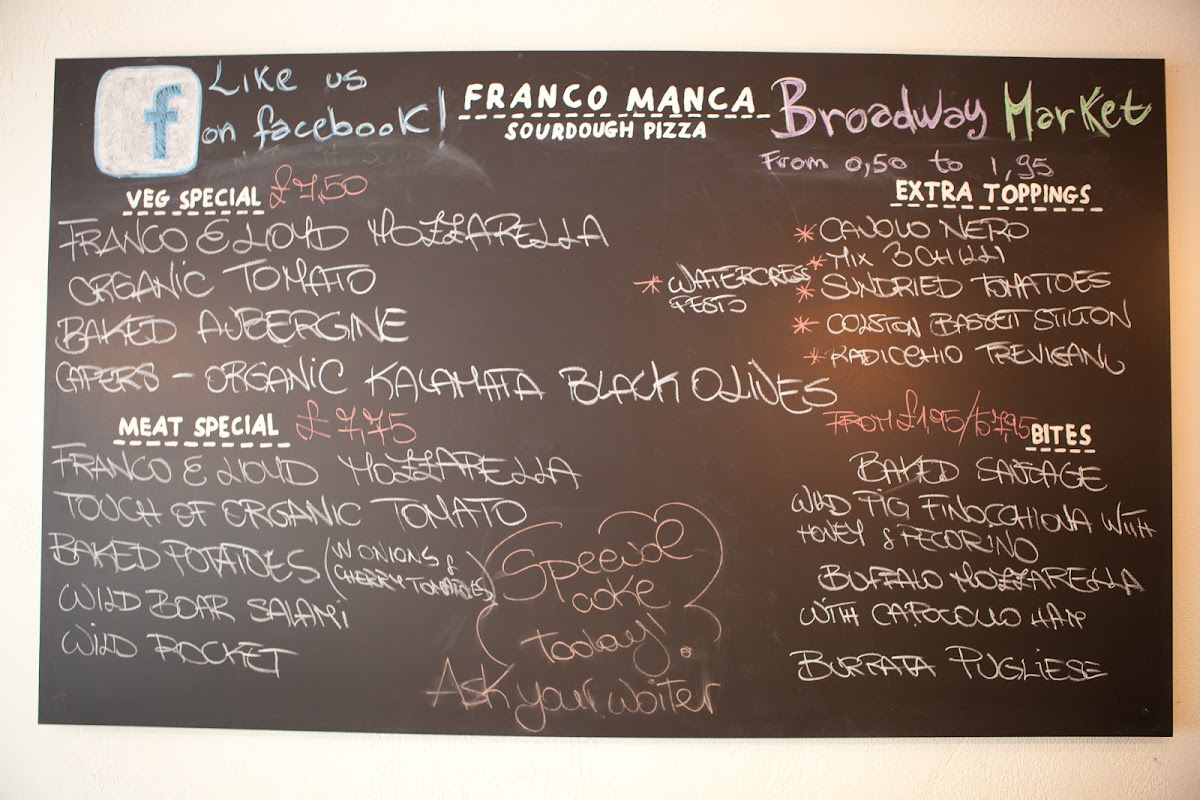 f
Like us
on facebook!
FRANCO MANCA
SOURDOUGH PIZZA
Broadway Market
From 0,50 to 1,95
VEG SPECIAL £7,50
FRANCO E LLOYD MOZZARELLA
ORGANIC TOMATO
BAKED AUBERGINE
CAPERS - ORGANIC KALAMATA BLACK OLIVES
MEAT SPECIAL £7,75
FRANCO E LLOYD MOZZARELLA
TOUCH OF ORGANIC TOMATO
BAKED POTATOES (W ONIONS &
CHERRY TOMATOES)
WILD BOAR SALAMI
WILD ROCKET
EXTRA TOPPINGS
* CAVOLO NERO
* MIX 3 CHILLI
* WATERCRESS
PESTO
* SUNDRIED TOMATOES
* COLSTON BASSETT STILTON
* RADICCHIO TREVIGIANO
FROM £1,95/£7,95 BITES
BAKED SAUSAGE
WILD PIG FINOCCHIONA WITH
HONEY & PECORINO
BUFFALO MOZZARELLA
WITH CAPOCOLLO HAM
BURRATA PUGLIESE
cake
today!
Ask your waiter